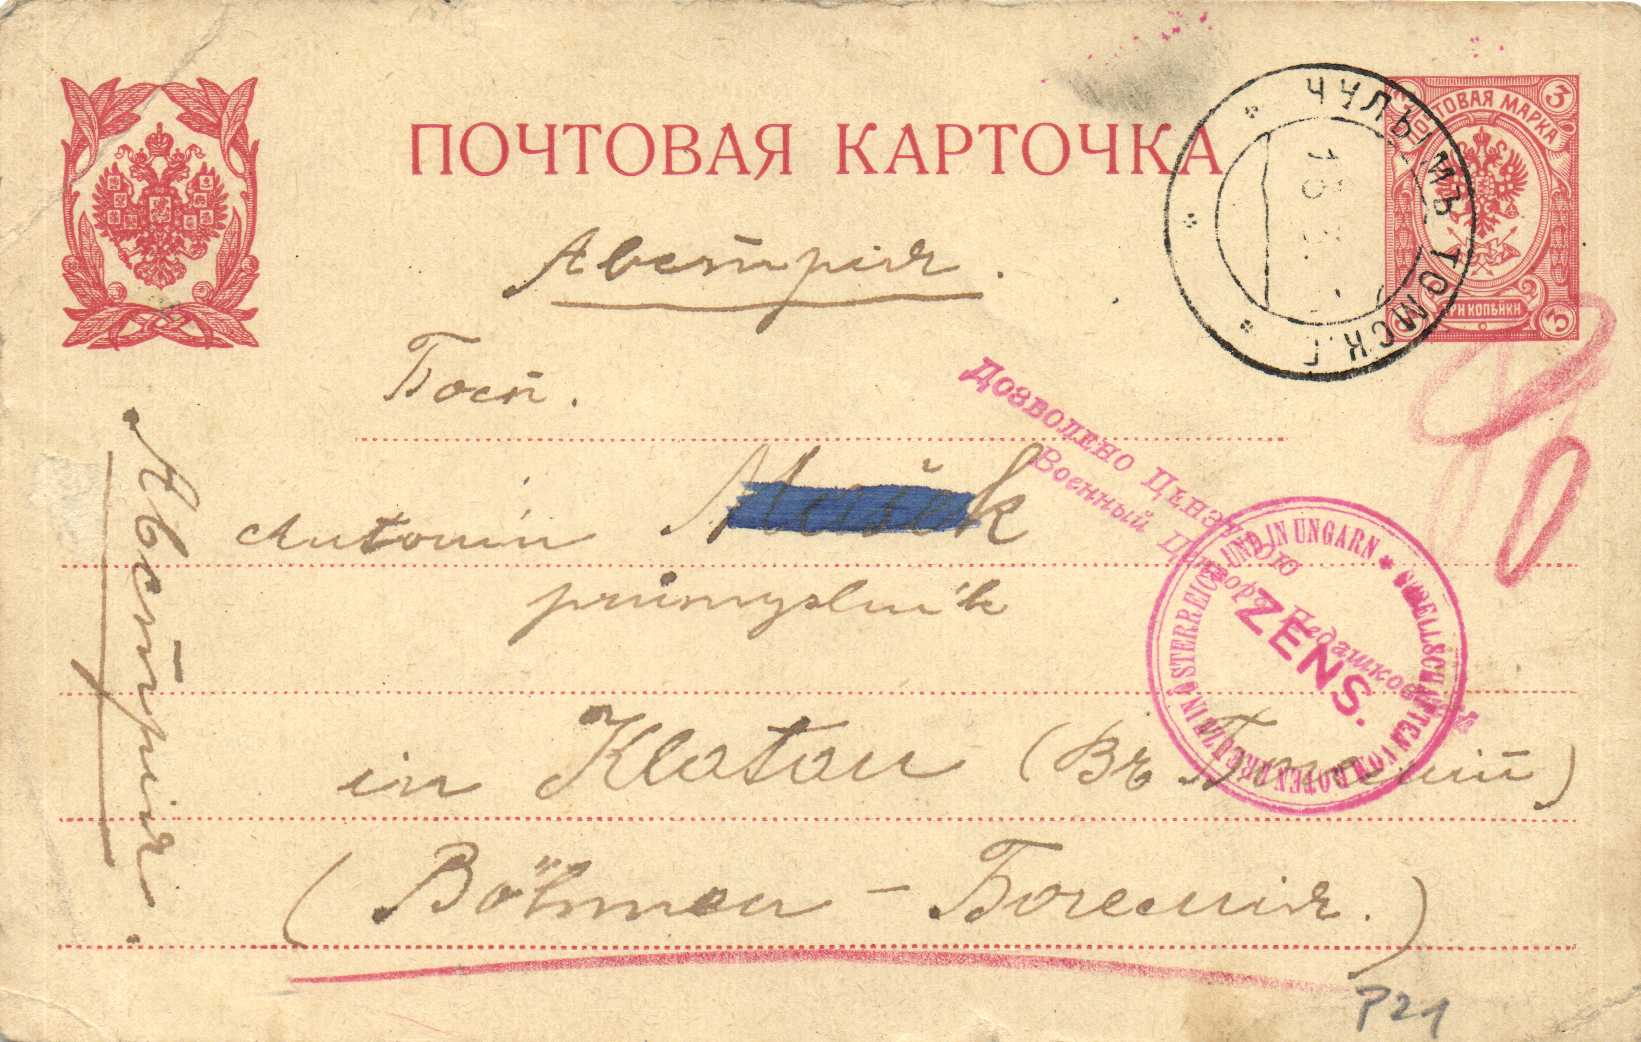 ПОЧТОВАЯ КАРТОЧКА
ПОЧТОВАЯ МАРКА
3
3
ТРИ КОПѢЙКИ
3
ЧУЛЫМЪ ТОМСК. Г.
Австрія.
Дозволено Цензурою
Военный Цензоръ
Antonín
průmyslník
in Klatau (Въ
(Böhmen – Богемія.)
Австрія.
IN ÖSTERREICH UND IN UNGARN * GESELLSCHAFTEN VOM ROTEN KREUZ
ZENS.
P21